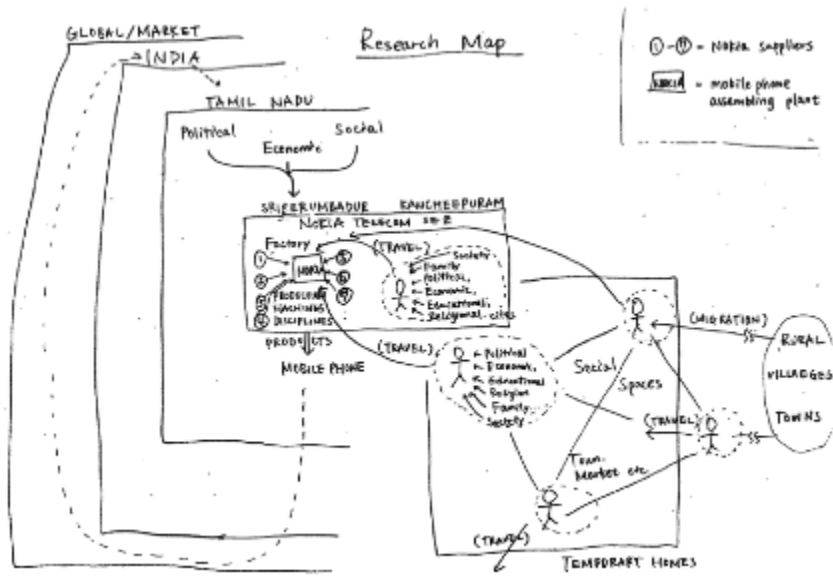 GLOBAL/MARKET
Research Map
INDIA
①-⑦ = Nokia suppliers
NOKIA = mobile phone
assembling plant
TAMIL NADU
Political
Economic
Social
SRIPERUMBADUR KANCHEEPURAM
NOKIA TELECOM SEZ
Factory
(TRAVEL)
①
⑤
NOKIA
②
⑥
③
⑦
④
MACHINES
DISCIPLINES
Society
Family
Political,
Economic,
Educational,
PRODUCTS
MOBILE PHONE
(TRAVEL)
Political
Economic,
Educational
Religion
Family
Society
Social
Spaces
(MIGRATION)
RURAL
VILLAEGES
TOWNS
(TRAVEL)
Town
Market etc
(TRAVEL)
TEMPORARY HOMES